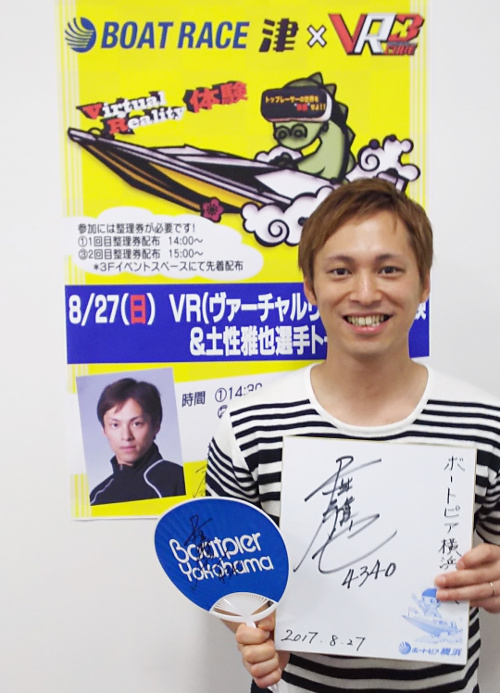 BOAT RACE 津 × VR CUBE
トップレーサーの世界を
体験せよ!!
Virtual
Reality 体験
参加には整理券が必要です!
①1回目整理券配布 14:00～
③2回目整理券配布 15:00～
*3Fイベントスペースにて先着配布
8/27(日) VR(ヴァーチャル
&土性雅也選手ト
時間 ①14:30
ボートピア横浜
4340
2017.8.27
ボートピア横浜
Boatpier
Yokohama